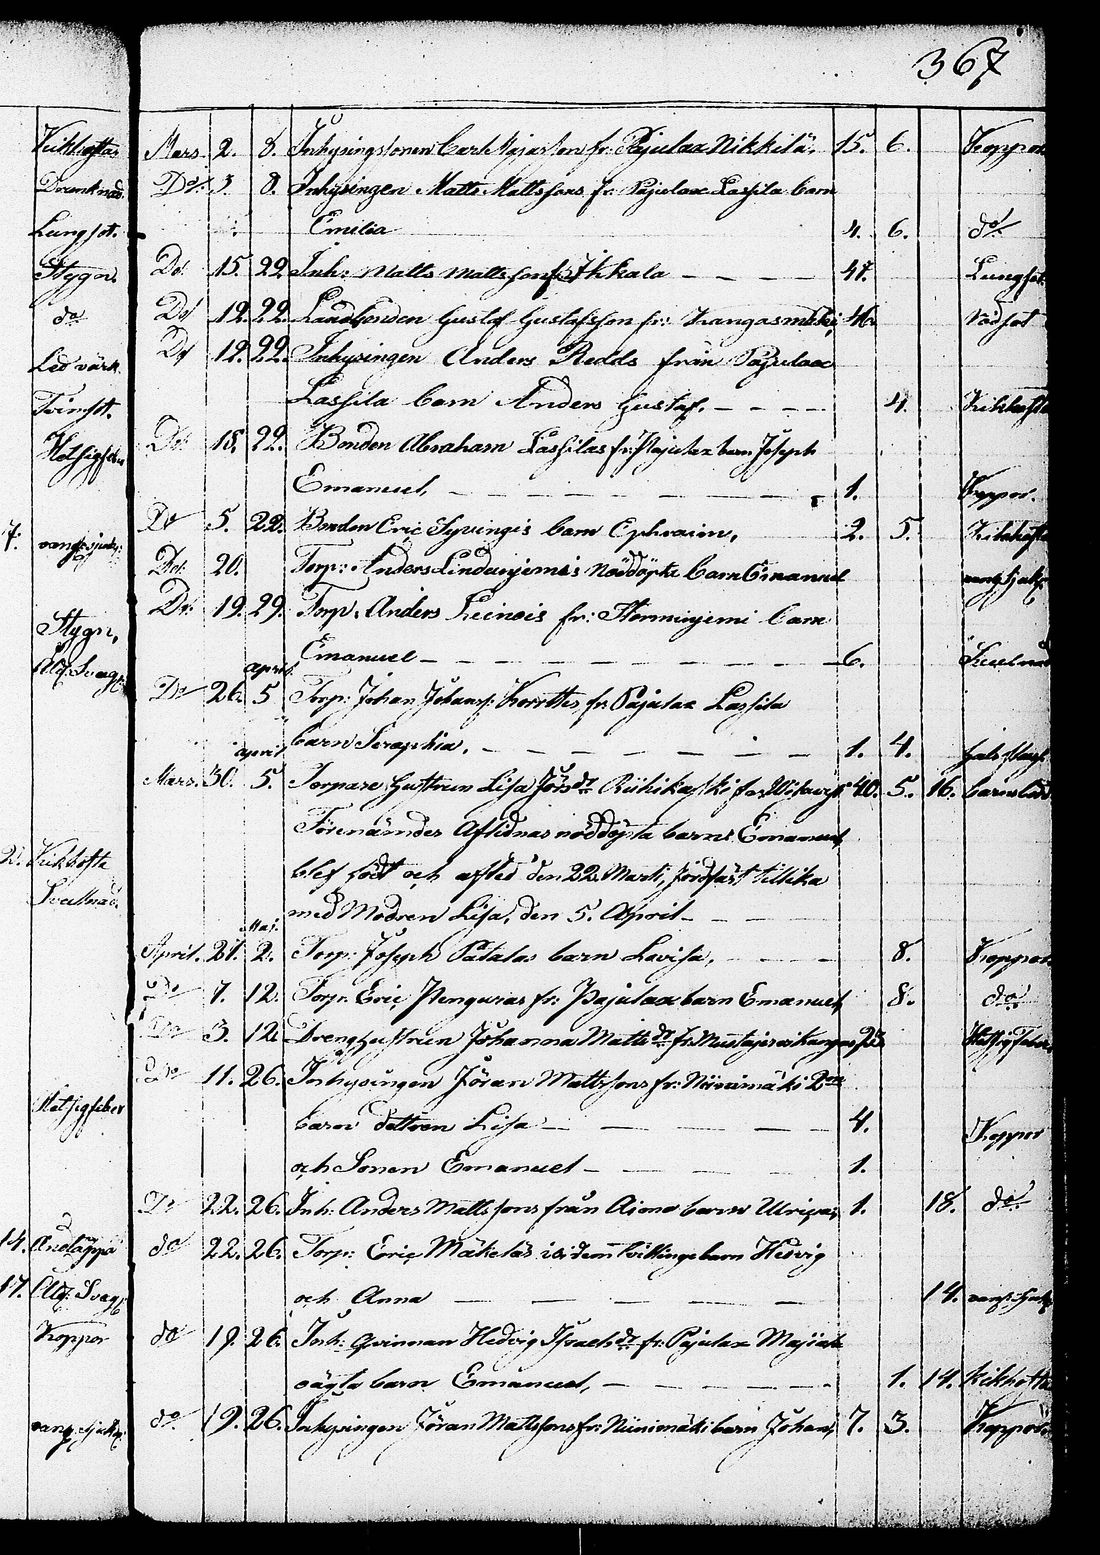 367
Mars. 2. 8. Inhysingssonen Carl Majasson fr. Pajulax Nikkilä. 15. 6. Koppor
Do. 3. 8. Inhysingen Matts Mattssons fr. Pajulax Lassila barn
Emilia 4. 6. do.
Do. 15. 22. Inh: Matts Mattsson fr. Ihkala 47. Lungsot
Do. 12. 22. Landbonden Gustaf Gustafsson fr: Kangasmäki, 46.
Do. 12. 22. Inhysingen Anders Redds från Pajulax
Lassila barn Anders Gustaf. 4. Kikhosta
Do. 18. 22. Bonden Abraham Lassilas fr: Pajulax barn Joseph
Emanuel, 1. Koppor.
Do 5. 22. Bonden Eric Syvingis barn Ephraim, 2. 5. Kikhosta
Do. 20. Torp: Anders Lindunjemis Nöddöpte barn Emanuel
Do. 19. 29. Torp. Anders Leinois fr: barn
april
Emanuel 6.
Do 26. 5 Torp: Johan Johanss: fr. Pajulax Lassila
april
barn Seraphia. 1. 4.
Mars. 30. 5. Torpare Hustrun Lisa Jörsdr 40. 5. 16. barnsbörd
Förenämdes Aflidnas nöddöpta barns Emanuel,
blef födt och afled den 22. Marti, jordfäst tillika
med Modren Lisa, den 5. April
Maj.
April. 21. 2. Torp: Joseph Patalas barn Lovisa, 8. Koppor
Do 7. 12. Torp. Eric Penguras fr: Pajulax barn Emanuel, 8. do
Do 3. 12 Dreng hustrun Johanna Mattsdr fr. 23 Hetsigfeber
Do 11. 26. Inhysingen Jöran Mattssons fr: Niinimäki 2ne
barn dottren Lisa 4. Koppor
och Sonen Emanuel 1.
Do 22. 26. Inh: Anders Mattssons från barn Ulrica, 1. 18. do.
do 22. 26. Torp: Eric Mäkeläs ibidem tvillinge barn Hedvig
och Anna 14.
do 19. 26. Inh: Qvinnan Hedvig Israelsdr fr: Pajulax
oägta barn Emanuel, 1. 14. Kikhosta
do 19. 26. Inhysingen Jöran Mattssons fr: Niinimäki barn Johan, 7. 3. Koppor
Kikhosta
Drunknad
Lungsot.
Stygn.
do
Led värk
Tvinsot.
Hetsigfeber
7.
Stygn.
Kikhosta
Hetsigfeber
14. Andtäppa
17. Ald. Svagh.
Koppor